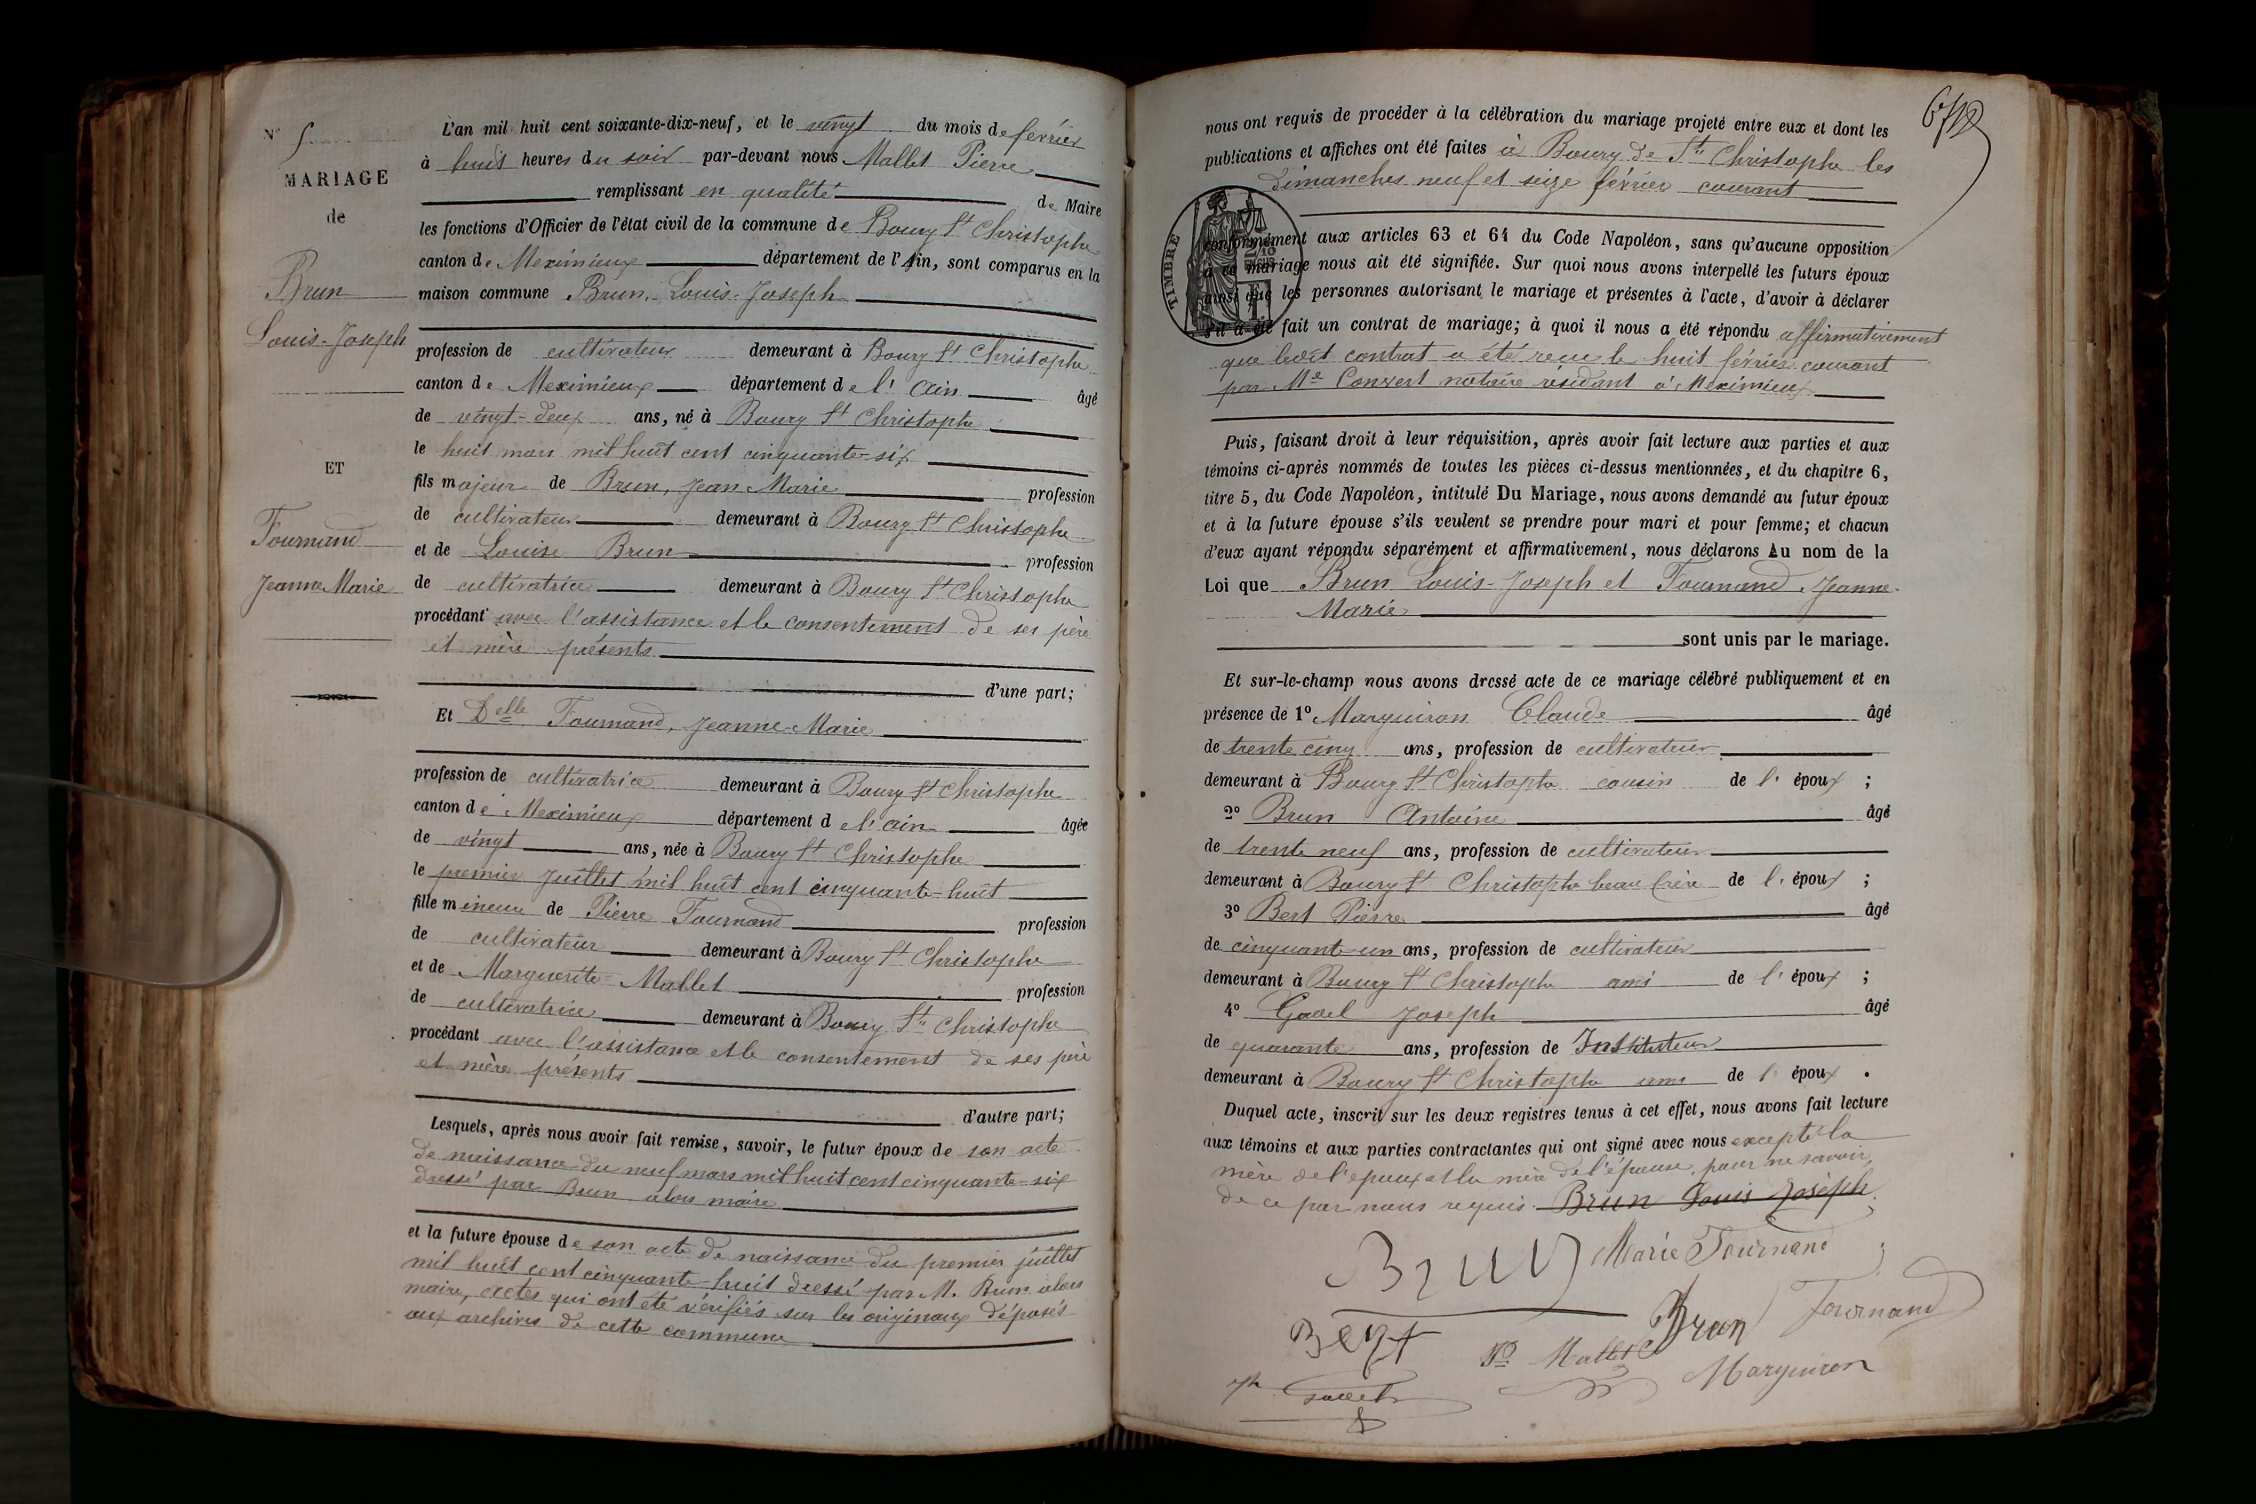 N° 5
MARIAGE
de
Brun
Louis-Joseph
ET
Tournand
Jeanne Marie
L'an mil huit cent soixante-dix-neuf, et le vingt du mois de février
à huit heures du soir par-devant nous Mallet Pierre
remplissant en qualité de Maire
les fonctions d'Officier de l'état civil de la commune de Bourg St Christophe
canton de Meximieux département de l'Ain, sont comparus en la
maison commune Brun, Louis-Joseph
profession de cultivateur demeurant à Bourg St Christophe
canton de Meximieux département de l'Ain âgé
de vingt-deux ans, né à Bourg St Christophe
le huit mars mil huit cent cinquante-six
fils majeur de Brun, Jean Marie profession
de cultivateur demeurant à Bourg St Christophe
et de Louise Brun profession
de cultivatrice demeurant à Bourg St Christophe
procédant avec l'assistance et le consentement de ses père
et mère présents
d'une part;
Et Delle Tournand, Jeanne-Marie
profession de cultivatrice demeurant à Bourg St Christophe
canton de Meximieux département de l'ain âgée
de vingt ans, née à Bourg St Christophe
le premier juillet mil huit cent cinquante-huit
fille mineure de Pierre Tournand profession
de cultivateur demeurant à Bourg St Christophe
et de Marguerite Mallet profession
de cultivatrice demeurant à Bourg St Christophe
procédant avec l'assistance et le consentement de ses père
et mère présents
d'autre part;
Lesquels, après nous avoir fait remise, savoir, le futur époux de son acte
de naissance du neuf mars mil huit cent cinquante-six
dressé par Brun alors maire
et la future épouse de son acte de naissance du premier juillet
mil huit cent cinquante-huit dressé par M. Brun alors
maire, actes qui ont été vérifiés sur les originaux déposés
aux archives de cette commune
nous ont requis de procéder à la célébration du mariage projeté entre eux et dont les
publications et affiches ont été faites à Bourg de St Christophe les
dimanches neuf et seize février courant
TIMBRE
conformément aux articles 63 et 64 du Code Napoléon, sans qu'aucune opposition
à ce mariage nous ait été signifiée. Sur quoi nous avons interpellé les futurs époux
ainsi que les personnes autorisant le mariage et présentes à l'acte, d'avoir à déclarer
s'il a été fait un contrat de mariage; à quoi il nous a été répondu affirmativement
que ledit contrat a été recu le huit février courant
par Me Convert notaire résidant à Meximieux
Puis, faisant droit à leur réquisition, après avoir fait lecture aux parties et aux
témoins ci-après nommés de toutes les pièces ci-dessus mentionnées, et du chapitre 6,
titre 5, du Code Napoléon, intitulé Du Mariage, nous avons demandé au futur époux
et à la future épouse s'ils veulent se prendre pour mari et pour femme; et chacun
d'eux ayant répondu séparément et affirmativement, nous déclarons Au nom de la
Loi que Brun Louis-Joseph et Tournand Jeanne-
Marie
sont unis par le mariage.
Et sur-le-champ nous avons dressé acte de ce mariage célébré publiquement et en
présence de 1° Marguiron Claude âgé
de trente cinq ans, profession de cultivateur
demeurant à Bourg St Christophe cousin de l'époux ;
2° Brun Antoine âgé
de trente neuf ans, profession de cultivateur
demeurant à Bourg St Christophe beau frère de l'époux ;
3° Bert Pierre âgé
de cinquante un ans, profession de cultivateur
demeurant à Bourg St Christophe ami de l'époux ;
4° Gadel Joseph âgé
de quarante ans, profession de Instituteur
demeurant à Bourg St Christophe ami de l'époux .
Duquel acte, inscrit sur les deux registres tenus à cet effet, nous avons fait lecture
aux témoins et aux parties contractantes qui ont signé avec nous excepté la
mère de l'époux et la mère de l'épouse, pour ne savoir,
de ce par nous requis. Brun Louis Joseph
Brun Marie Tournand
Brun Tournand
Bert Pre Mallet Marguiron